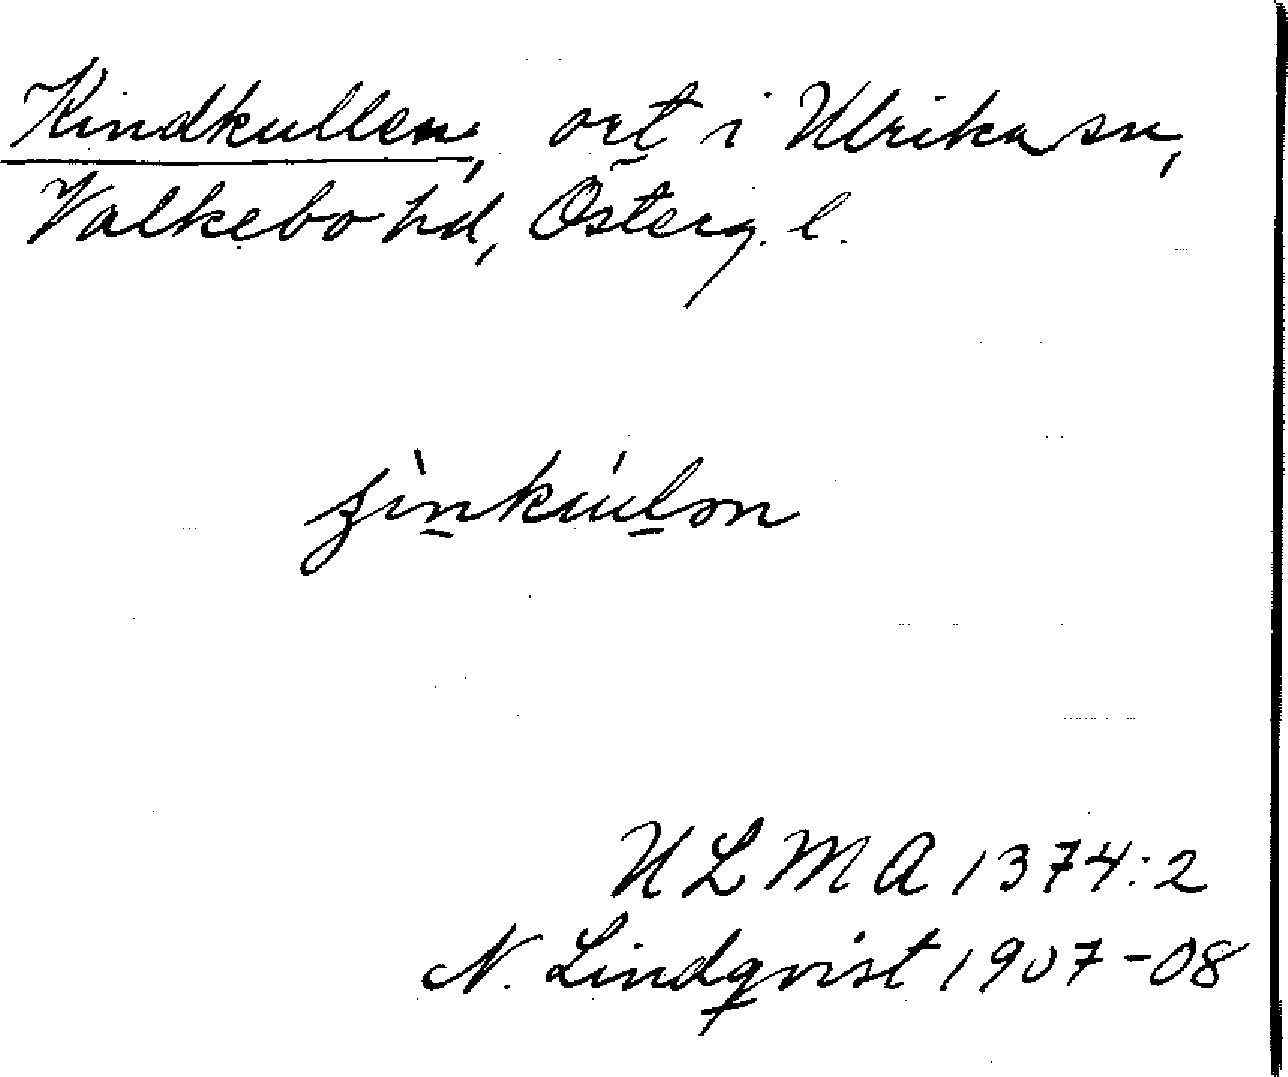 Kindkullen, ort i Ulrika sn,
Valkebo hd, Österg. l.
ʒìn̠kúl̠ən
ULMA 1374:2
N. Lindqvist 1907-08